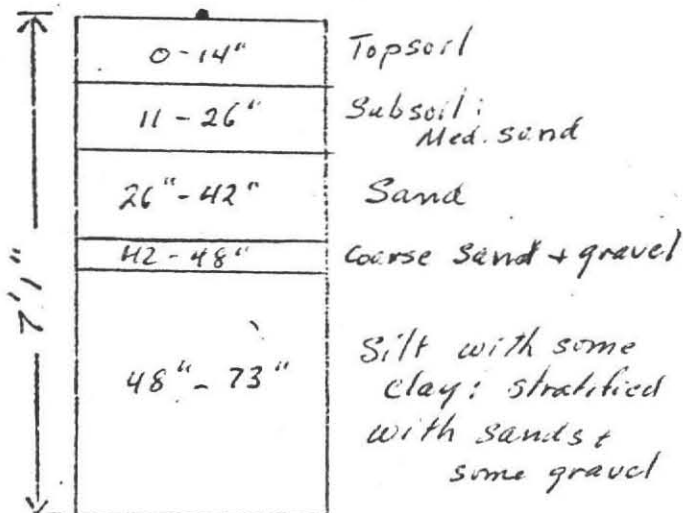 0-14" Topsoil
11-26" Subsoil:
Med. sand
26"-42" Sand
42-48" Coarse Sand + gravel
7'1"
48"-73" Silt with some
clay; stratified
with sands &
some gravel